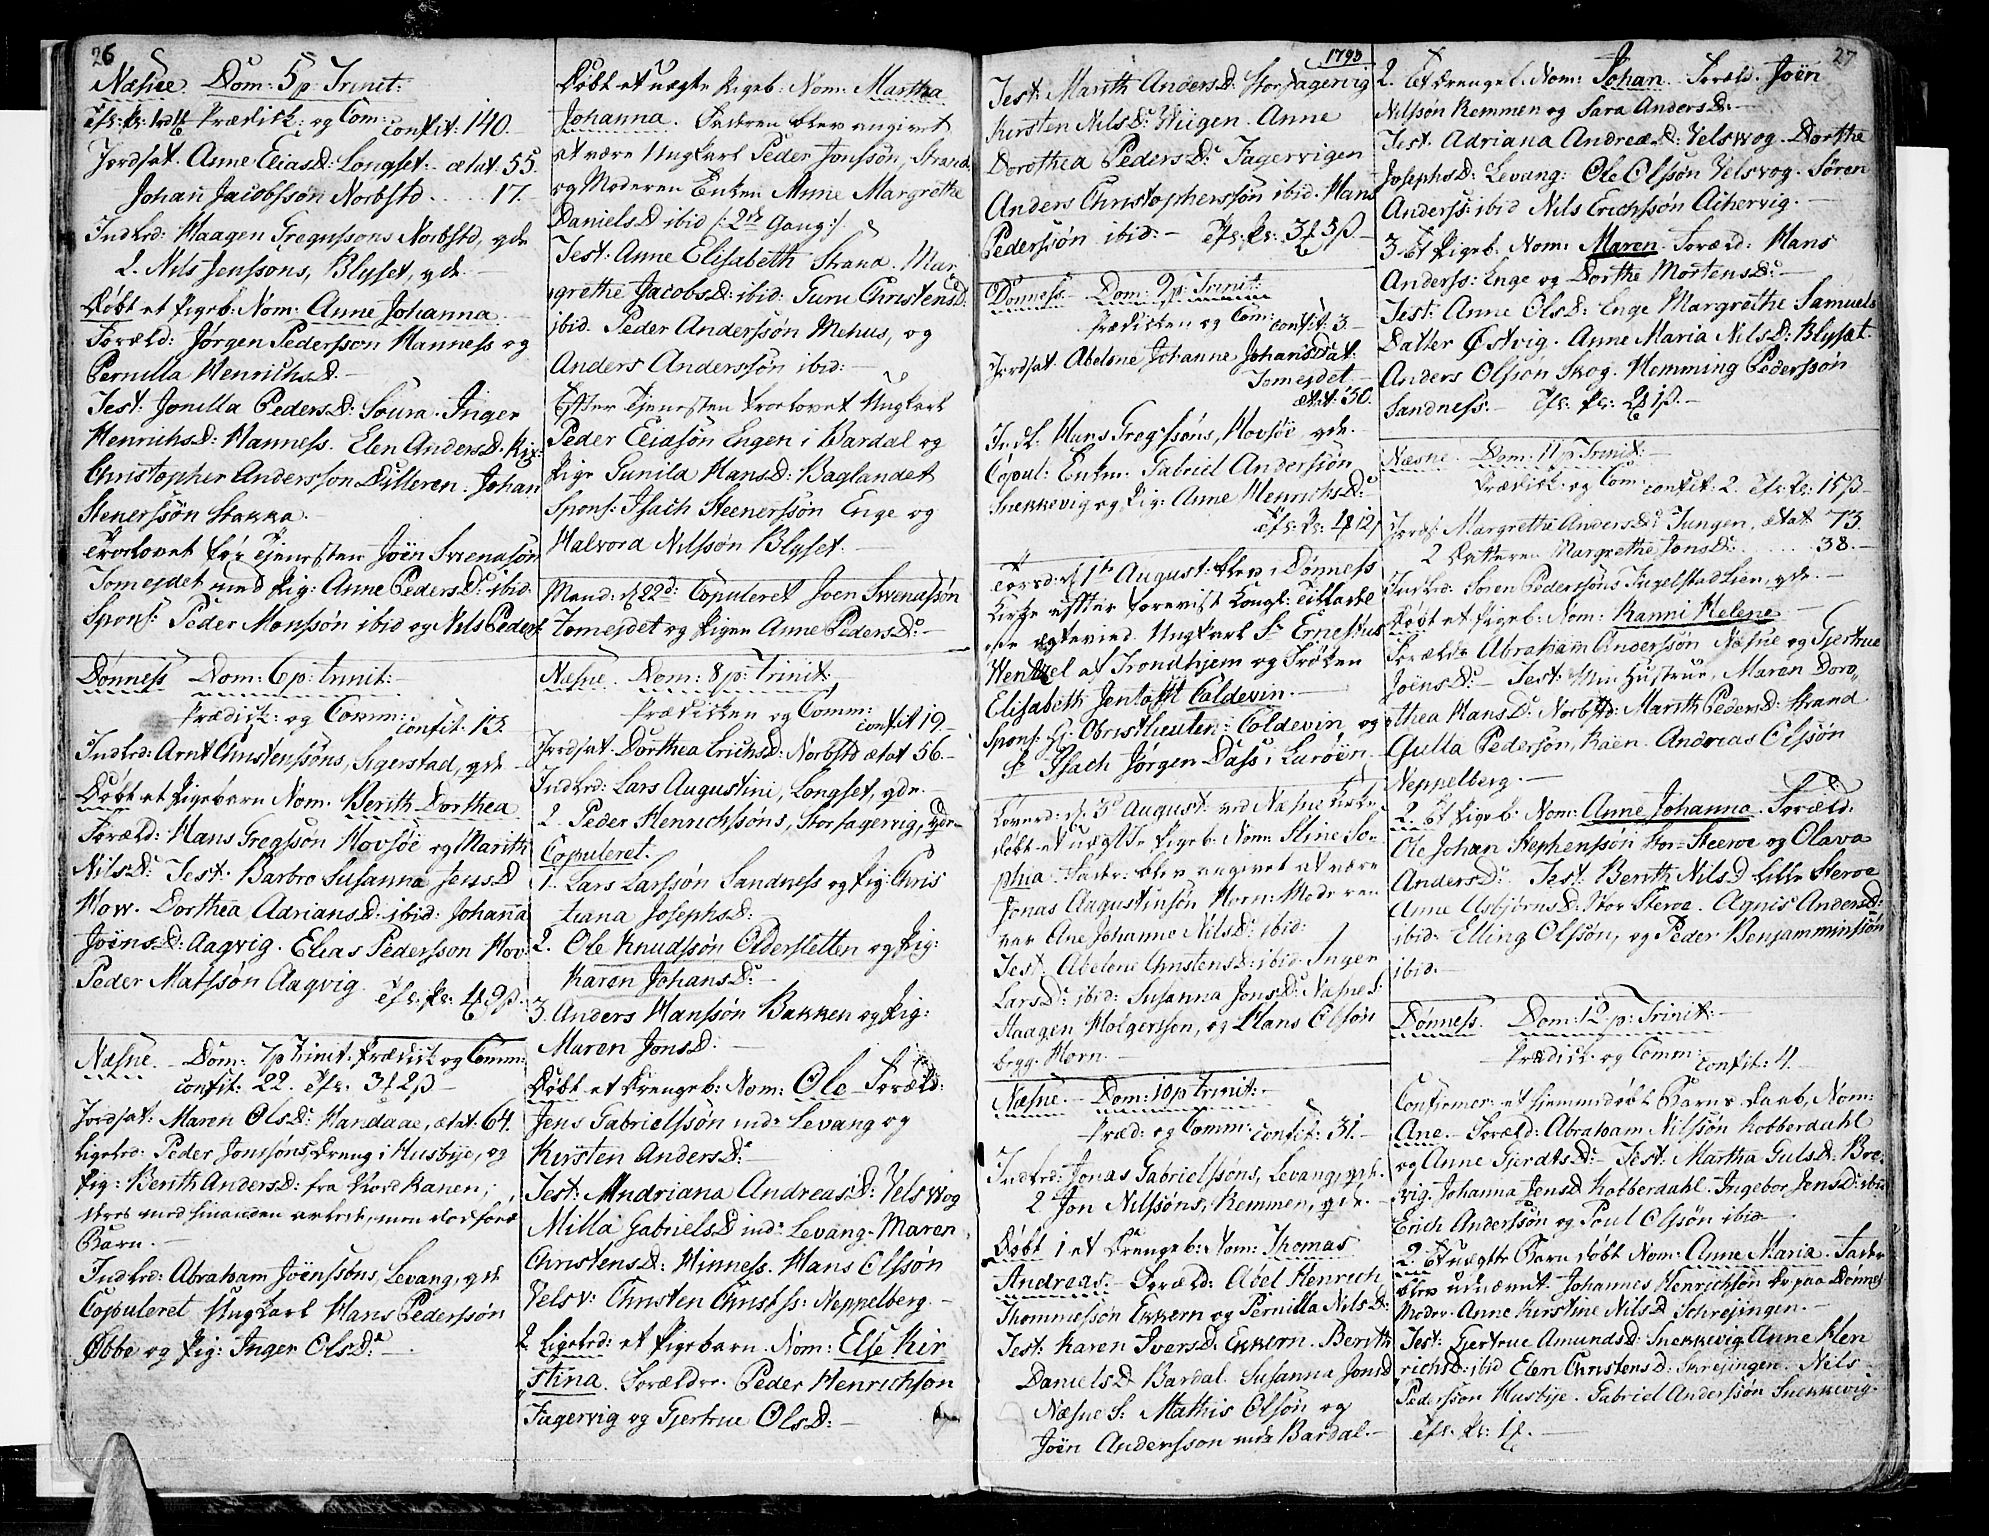 26
Næsne Dom: 5 p: Trinit:
Prædik: og Com: confit: 140.
Jordsat. Anne EliasD: Longset: ætat. 55.
Johan Jacobssøn Norbstd .... 17.
Indlrd: Haagen Gregussøns Norbstd, qde
2. Nils Jenssøns, Blyset, qde.
Døbt et Pigeb: Nom: Anne Johanna.
Foræld: Jørgen Pedersson Hanness og
Pernilla HenrichsD.
Test: Jonilla PedersD: Soura. Inger
HenrichsD: Hanness. Elen AndersD.
Christopher Andersson Dilleren. Johan
Stenerssøn Stakka.
Trolovet før Tjenesten Joen Svenassøn
Tomejdet med Pig: Anne PedersD: ibid.
Spons: Peder Monssøn ibid og Nils Peders:
Dønness Dom: 6 p: Trinit:
Prædik: og Comm: confit: 13.
Indlrd: Arnt Christenssøns, Sigerstad, qde
Døbt et Pigebarn Nom. Berith Dorthea
Foræld: Hans Gregssøn Hovsøe og Marith
NilsD: Test. Barbro Susanna JensD
How. Dorthea AdriansD: ibid: Johanna
JoensD: Aagvig. Elias Pedersson Hov:
Peder Matssøn Aagvig
Næsne Dom: 7 p Trinit. Prædik og Comm:
confit: 22.
Jordsat: Maren OlsD: Handaae, ætat. 64.
Ligelrd: Peder Jonssøns Dreng i Husbÿe, og
Pig: Berith AndersD: fra Nord Ranen,
Barn.
Indlrd: Abraham Joenssøns, Levang, qde
Copuleret Ungkarl Hans Pederssøn
Øbbe og Pig: Inger OlsD:
Døbt et uegte Pigeb: Nom: Martha
Johanna. Faderen blev angivet
at være Ungkarl Peder Jonssøn, Strand
og Moderen Enken Anne Margrethe
DanielsD ibid /: 2de Gang :/
Test: Anne Elisabeth Strand. Mar
grethe JacobsD: ibid: Guru ChristensD.
ibid. Peder Anderssøn Mehus, og
Anders Anderssøn ibid:
Efter Tjenesten trolovet Ungkarl
Peder Eliasøn Engen i Bardal og
Pige Gunild HansD: Baglandet
Spons: Isach Steenerssøn Enge og
Halvord Nilssøn Blyset.
Mand: d. 22d: Copuleret Joen Svenassøn
Tomejdet og Pigen Anne PedersD:
Næsne. Dom: 8 p: Trinit:
Prædiken og Comm: confit 19.
Jordsat. Dorthea ErichsD: Norbstd ætat 56.
Indlrd: Lars Augustini, Longset, qde.
2 Peder Henrichssøns, Storfagervig, qde
Copuleret.
1. Lars Larssøn Sandness og Pig: Chris
tiana JosephsD:
2. Ole Knudssøn Oldersletten og Pig:
Karen JohansD:
3. Anders Hanssøn Bakken og Pig:
Maren JonsD:
Døbt et Drengeb: Nom: Ole Foræld:
Jens Gabrielssøn ind: Levang og
Kirsten AndersD:
Test: Andriana AndreasD: Velswog
Milla GabrielsD ind: Levang. Maren
ChristensD: Hinness. Hans Olssøn
Velsv: Christen Christs: Neppelberg.
2 Ligelrd: et Pigebarn. Nom: Else Kir
stina. Forældre. Peder Henrichsøn
Fagervig og Gjertrue OlsD:
1793
Test: Marith AndersD: Storfagervig
Kirsten NilsD: Wiigen. Anne
Dorothea PedersD: Fagervigen
Anders Christophersson ibid. Hans
Pederssøn ibid:
Dønness Dom: 9 p: Trinit:
Prædiken og Com: confit: 3.
Jordsat. Abelone Johanne Johansdat:
Tomejdet
ætat: 30.
Indl: Hans Gregssøns, Hovsøe qde.
Copul: Enkm. Gabriel Anderssøn
Snekkevig og Pig: Anne HenrichsD:
Torsd: d. 1te August: blev i Dønness
Kirke efter forevist Kongl: Tilladel
se egtevied Ungkarl Sr Ernestus
Wentzel af Trondhjem og Frøken
Elisabeth Jentoft Coldevin.
Spons: Hr Obristlieuten: Coldevin og
Sr Isach Jørgen Dass i Lurøen.
Løverd: d. 3d August ved Næsne Kirke
døbt et uegte Pigeb: Nom: Stine So
phia. Fader blev angivet at være
Jonas Augustinsøn Horn: Moderen
var Ane Johanne NilsD: ibid:
Test. Abelone ChristensD: ibid. Inger
LarsD: ibid: Susanna JonsD: Næsne S:
Haagen Holgersson, og Hans Olssøn
begg: Horn.
Næsne. Dom: 10 p Trinit:
Præd: og Comm: confit: 31.
Indlrd: Jonas Gabrielssøns, Levang, qde.
2 Jon Nilssøns, Remmen, qde.
Døbt 1 et Drengeb: Nom: Thomas
Andreas. Foræld: Abel Henrich
Thommessøn Ekkern og Pernilla NilsD:
Test: Karen IversD. Ekkern. Berith
DanielsD Bardal. Susanna JonsD
Næsne S: Mathis Olsøn og
Joen Andersson Bardal.
27
2. Et Drengeb. Nom: Johan. Foræld. Joen
Nilssøn Remmen og Sara AndersD:
Test. Adriana AndreæD: Velswog. Dorthe
JosephsD: Levang: Ole Olssøn Velsvog. Søren
Anderss: ibid Nils Erichssøn Aakervig.
3 Et Pigeb. Nom: Maren. Foræld: Hans
Anderss: Enge og Dorthe MortensD:
Test: Anne OlsD: Enge Margrethe Samuels
Datter Østvig. Anne Maria NilsD: Blyset.
Anders Olssøn Skog. Hemming Pederssøn
Sandness.
Næsne. Dom: 11 p Trinit:
Prædik: og Com: confit: 2.
Jords: Margrethe AndersD: Jungen, ætat 73.
2 Datteren Margrethe JonsD: .... 38.
Indlrd: Søren Pederssøns Ingelstad Lien, qde.
Døbt et Pigeb: Nom: Ranni Helene
Forældr Abraham Anderssøn Næsne og Gjertrue
JoensD: Test: Min Hustrue, Maren Doro,,
thea HansD: Norbstd: Marith PedersD: Strand
Gulla Pedersøn, Raen. Andreas Olssøn
Neppelberg.
2. Et Pigeb. Nom: Anne Johanna. Foræld:
Ole Johan Stephenssøn Stor=Steeroe og Olava
AndersD: Test. Berith NilsD Lille Steroe
Anne AsbjørnsD. Stor Steroe. Agnis AndersD:
ibid: Elling Olssøn, og Peder Benjamminssøn
ibid.
Dønness. Dom: 12 p: Trinit:
Prædik. og Comm: confit: 4.
Confirmer: et hiemmedøbt Barns Daab, Nom:
Ane. Foræld: Abraham Nilssøn Kobberdahl
og Anne GjerdtsD: Test: Martha GulsD: Bre,
vig. Johanna JensD Kobberdahl. Ingebor JensD: ibid
Erich Anderssøn og Poul Olssøn ibid
2. Et uegte Barn døbt Nom: Anne Maria. Fader
blev udnævnt Johannes Henrichsøn Kr paa Dønnes
Moder. Anne Kirstine NilsD Schrejingen.
Test: Gjertrue AmundsD: Snekkevig. Anne Hen
richsD: ibid Elen ChristensD: Skrejingen. Nils
Pedersson Husbÿe. Gabriel Anderssøn Snekkevig.